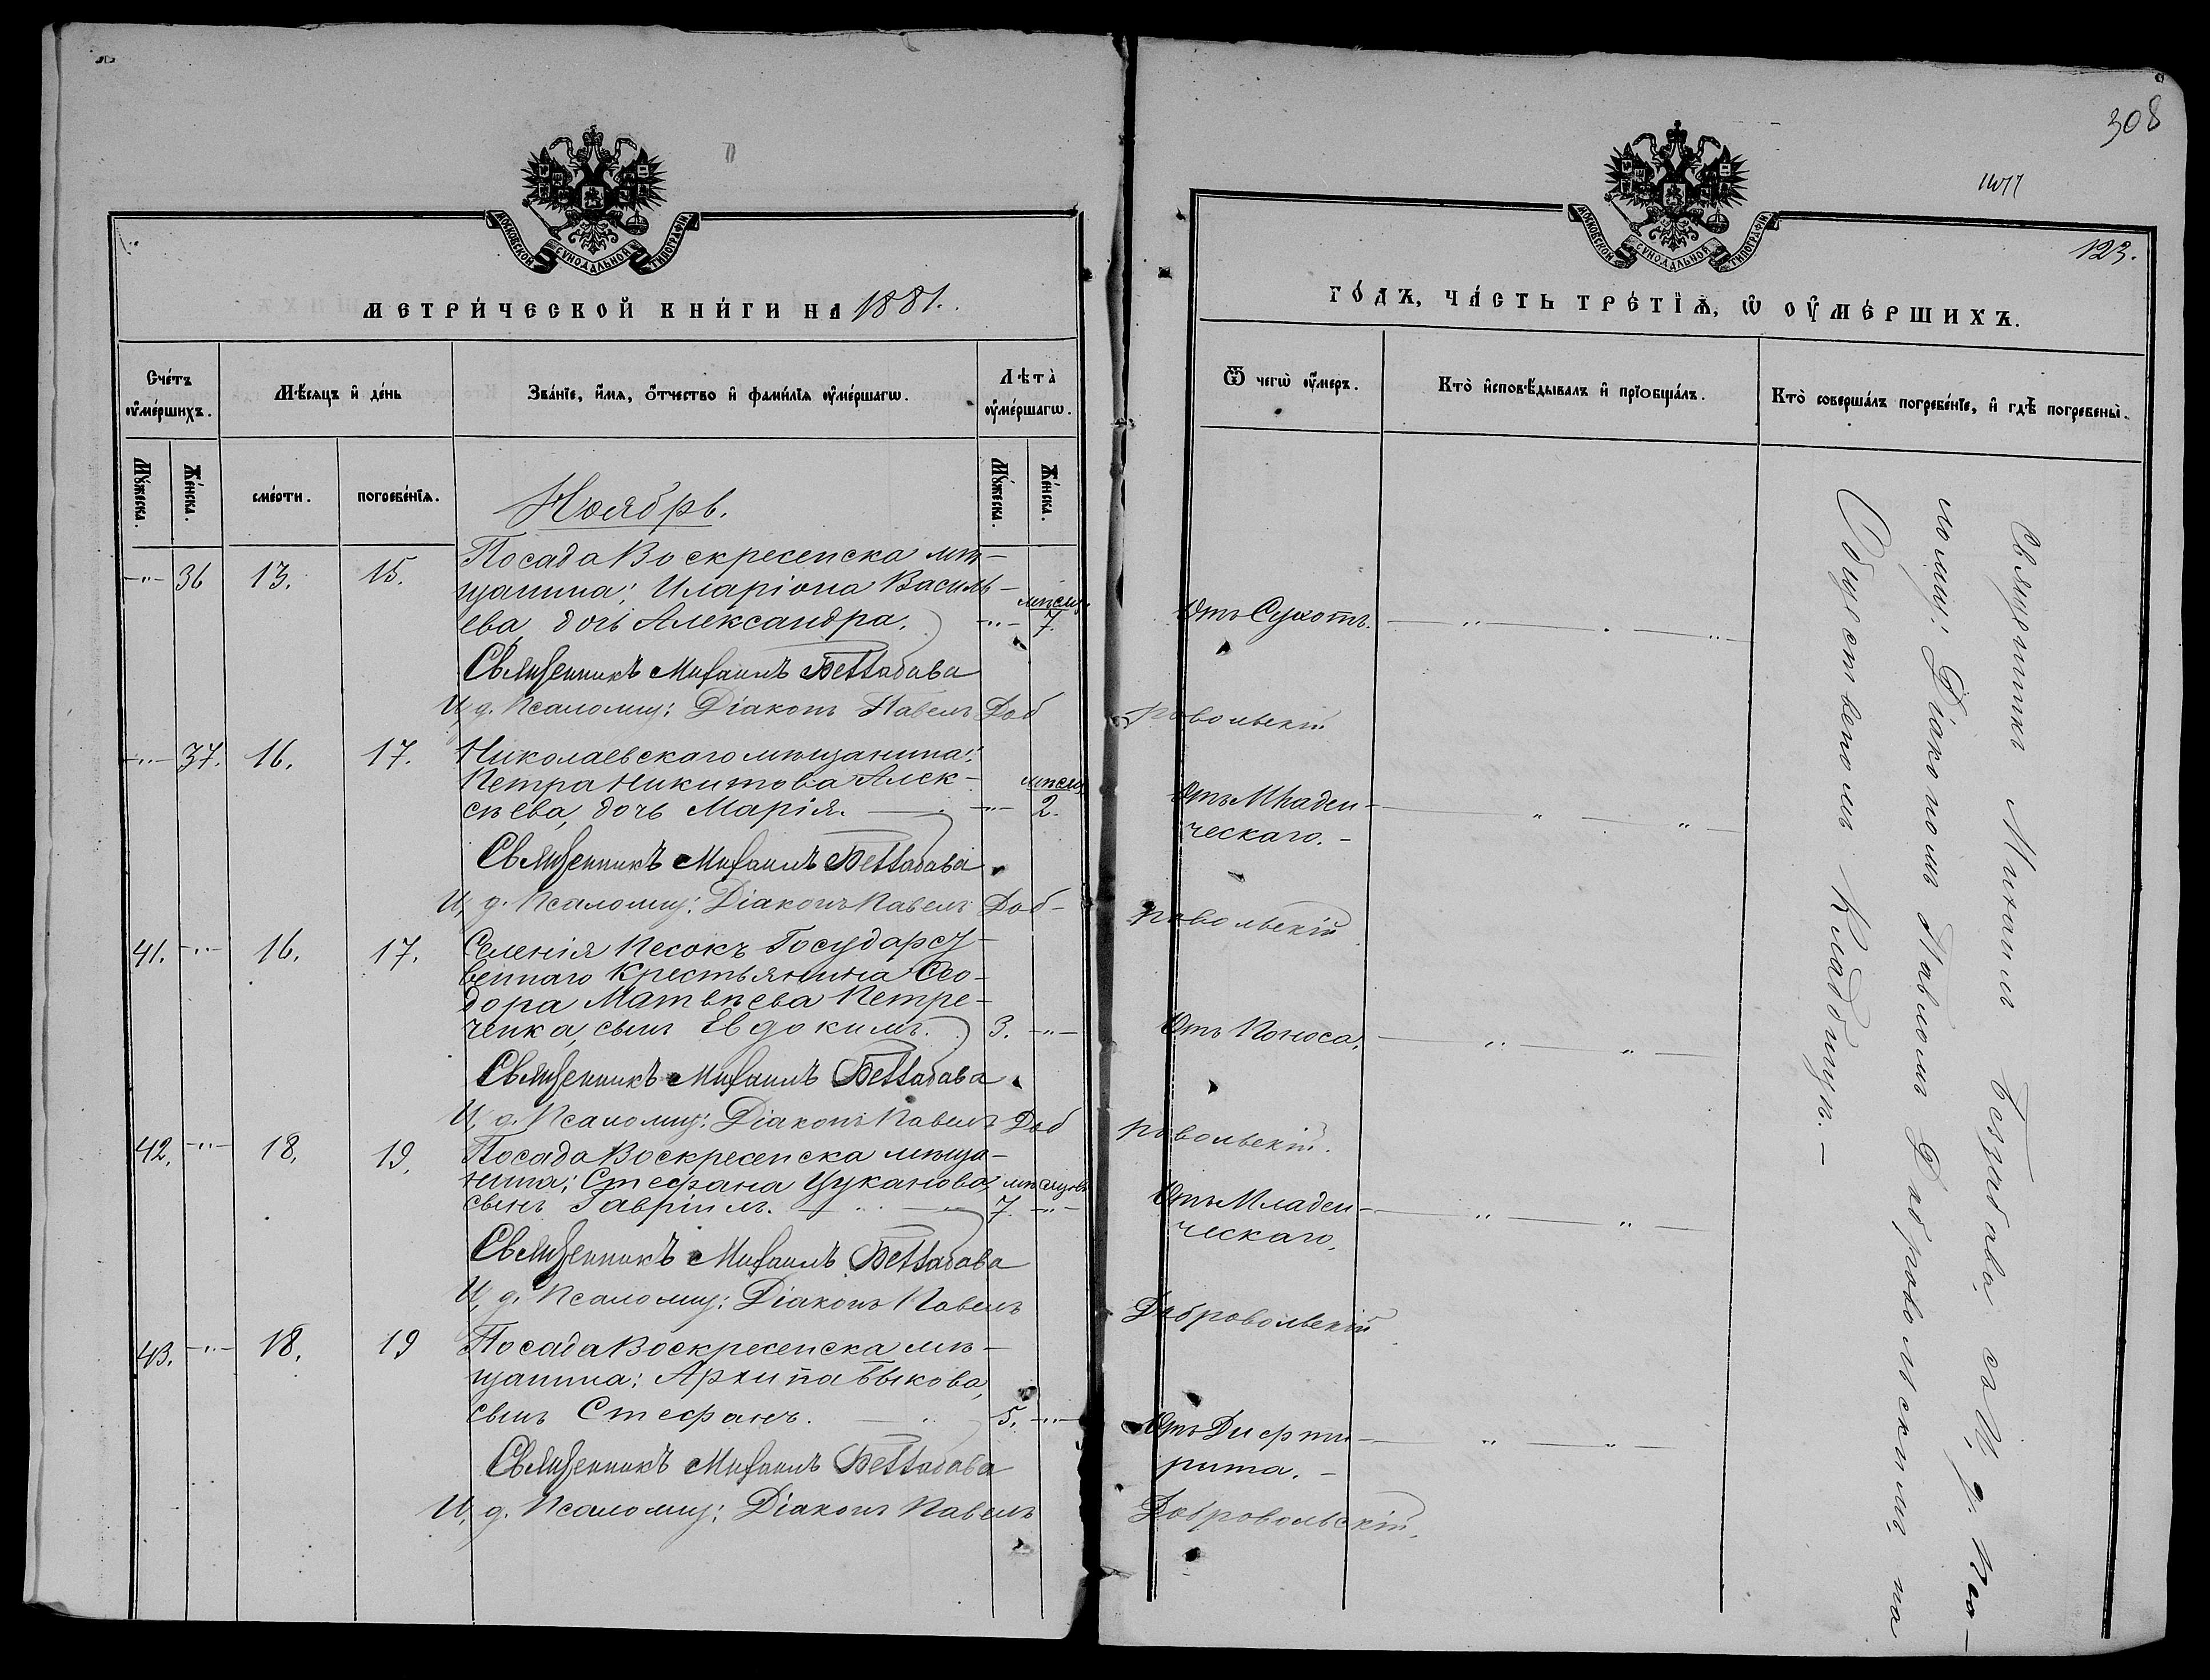 МОСКОВСКОЙ СѴНОДАЛЬНОЙ ТИПОГРАФІИ
МЕТРИ́ЧЕСКОЙ КНИ́ГИ НА 1881.
Сче́тъ ᲂу҆ме́ршихъ.
Мѣ́сяцъ и҆ де́нь
Зва́нїе, и҆́мя, ѻ҆́тчество и҆ фами́лїя ᲂу҆ме́ршагѡ.
Лѣта̀ ᲂу҆ме́ршагѡ.
Мꙋ́жеска.
Же́нска.
сме́рти.
погребе́нїя.
Мꙋ́жеска.
Же́нска.
Ноябрь.
—"— 36 13. 15. Посада Воскресенска мѣ-
щанина; Иларіона Василь-
ева, дочь Александра. —"— мѣсяц. 7.
Священникъ Михаилъ Беззабава
И, д. Псаломщ: Діаконъ Павелъ Доб
—"— 37. 16. 17. Николаевскаго мѣщанина:
Петра Никитова Алек-
сѣева, дочь Марія. —"— мѣсяц. 2.
Священникъ Михаилъ Беззабава
И, д. Псаломщ: Діаконъ Павелъ Доб-
41. —"— 16. 17. Селенія Песокъ Государст-
веннаго Крестьянина Ѳео-
дора Матвѣева Петре-
ченка, сынъ Евдокимъ. 3. —"—
Священникъ Михаилъ Беззабава
И, д. Псаломщ: Діаконъ Павелъ Доб
42. —"— 18. 19. Посада Воскресенска мѣща-
нина; Стефана Цуканова, мѣсяцовъ
сынъ Гавріилъ. 7. —"—
Священникъ Михаилъ Беззабава
И, д. Псаломщ: Діаконъ Павелъ
43. —"— 18. 19 Посада Воскресенска мѣ-
щанина; Архипа Быкова,
сынъ Стефанъ. 5. —"—
Священникъ Михаилъ Беззабава
И, д. Псаломщ: Діаконъ Павелъ
308
123.
МОСКОВСКОЙ СѴНОДАЛЬНОЙ ТИПОГРАФІИ
ГО́ДЪ, ЧА́СТЬ ТРЕ́ТЇѦ, Ѡ҆ ОУ҆МЕ́РШИХЪ.
Ѿ чегѡ̀ ᲂу҆́меръ.
Кто̀ и҆сповѣ́дывалъ и҆ прїобща́лъ.
Кто̀ соверша́лъ погребе́нїе, и҆ гдѣ̀ погребены̀.
Отъ Сухотъ.
ровольскій
Отъ Младен-
ческаго. -
ровольскій
Отъ Поноса.
ровольскій.
Отъ Младен-
ческаго.
Добровольскій
Отъ Дифти-
рита. -
Добровольскій.
Священникъ Михаилъ Беззабава, съ И, д. Пса-
ломщ; Діакономъ Павломъ Добровольскимъ, на
Общественномъ Кладбищѣ. —